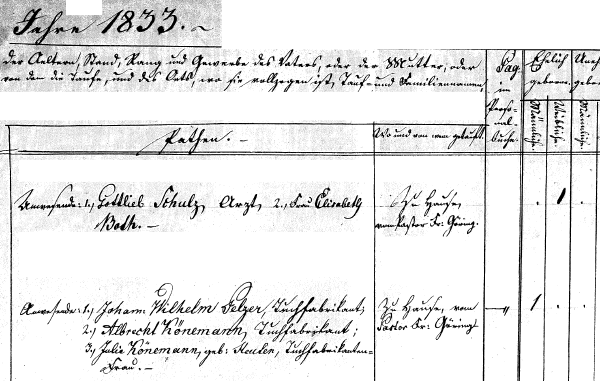 Jahre 1833.
der Aeltern, Stand, Rang und Gewerbe des Vaters, oder der Mutter, oder
von dem die Taufe, und des Orts, wo sie vollzogen ist, Tauf- und Familiennamen
Pag. in Perso- nal- buche.
Ehelich geboren.
Uneh gebo
Männliche.
Weibliche.
Männliche.
Pathen. -
Wo und von wem getauft.
Anwesende: 1., Gottlieb Schulz, Arzt, 2., Frau Elisabeth
Both. -
Zu Hause,
vom Pastor Fr: Göring.
1
Anwesende: 1., Johann Wilhelm Pelzer, Tuchfabrikant;
2., Albrecht Könemann, Tuchfabrikant;
3., Julie Könemann, geb: Tuchfabrikanten-
Frau. -
Zu Hause, vom
Pastor Fr: Göring
1